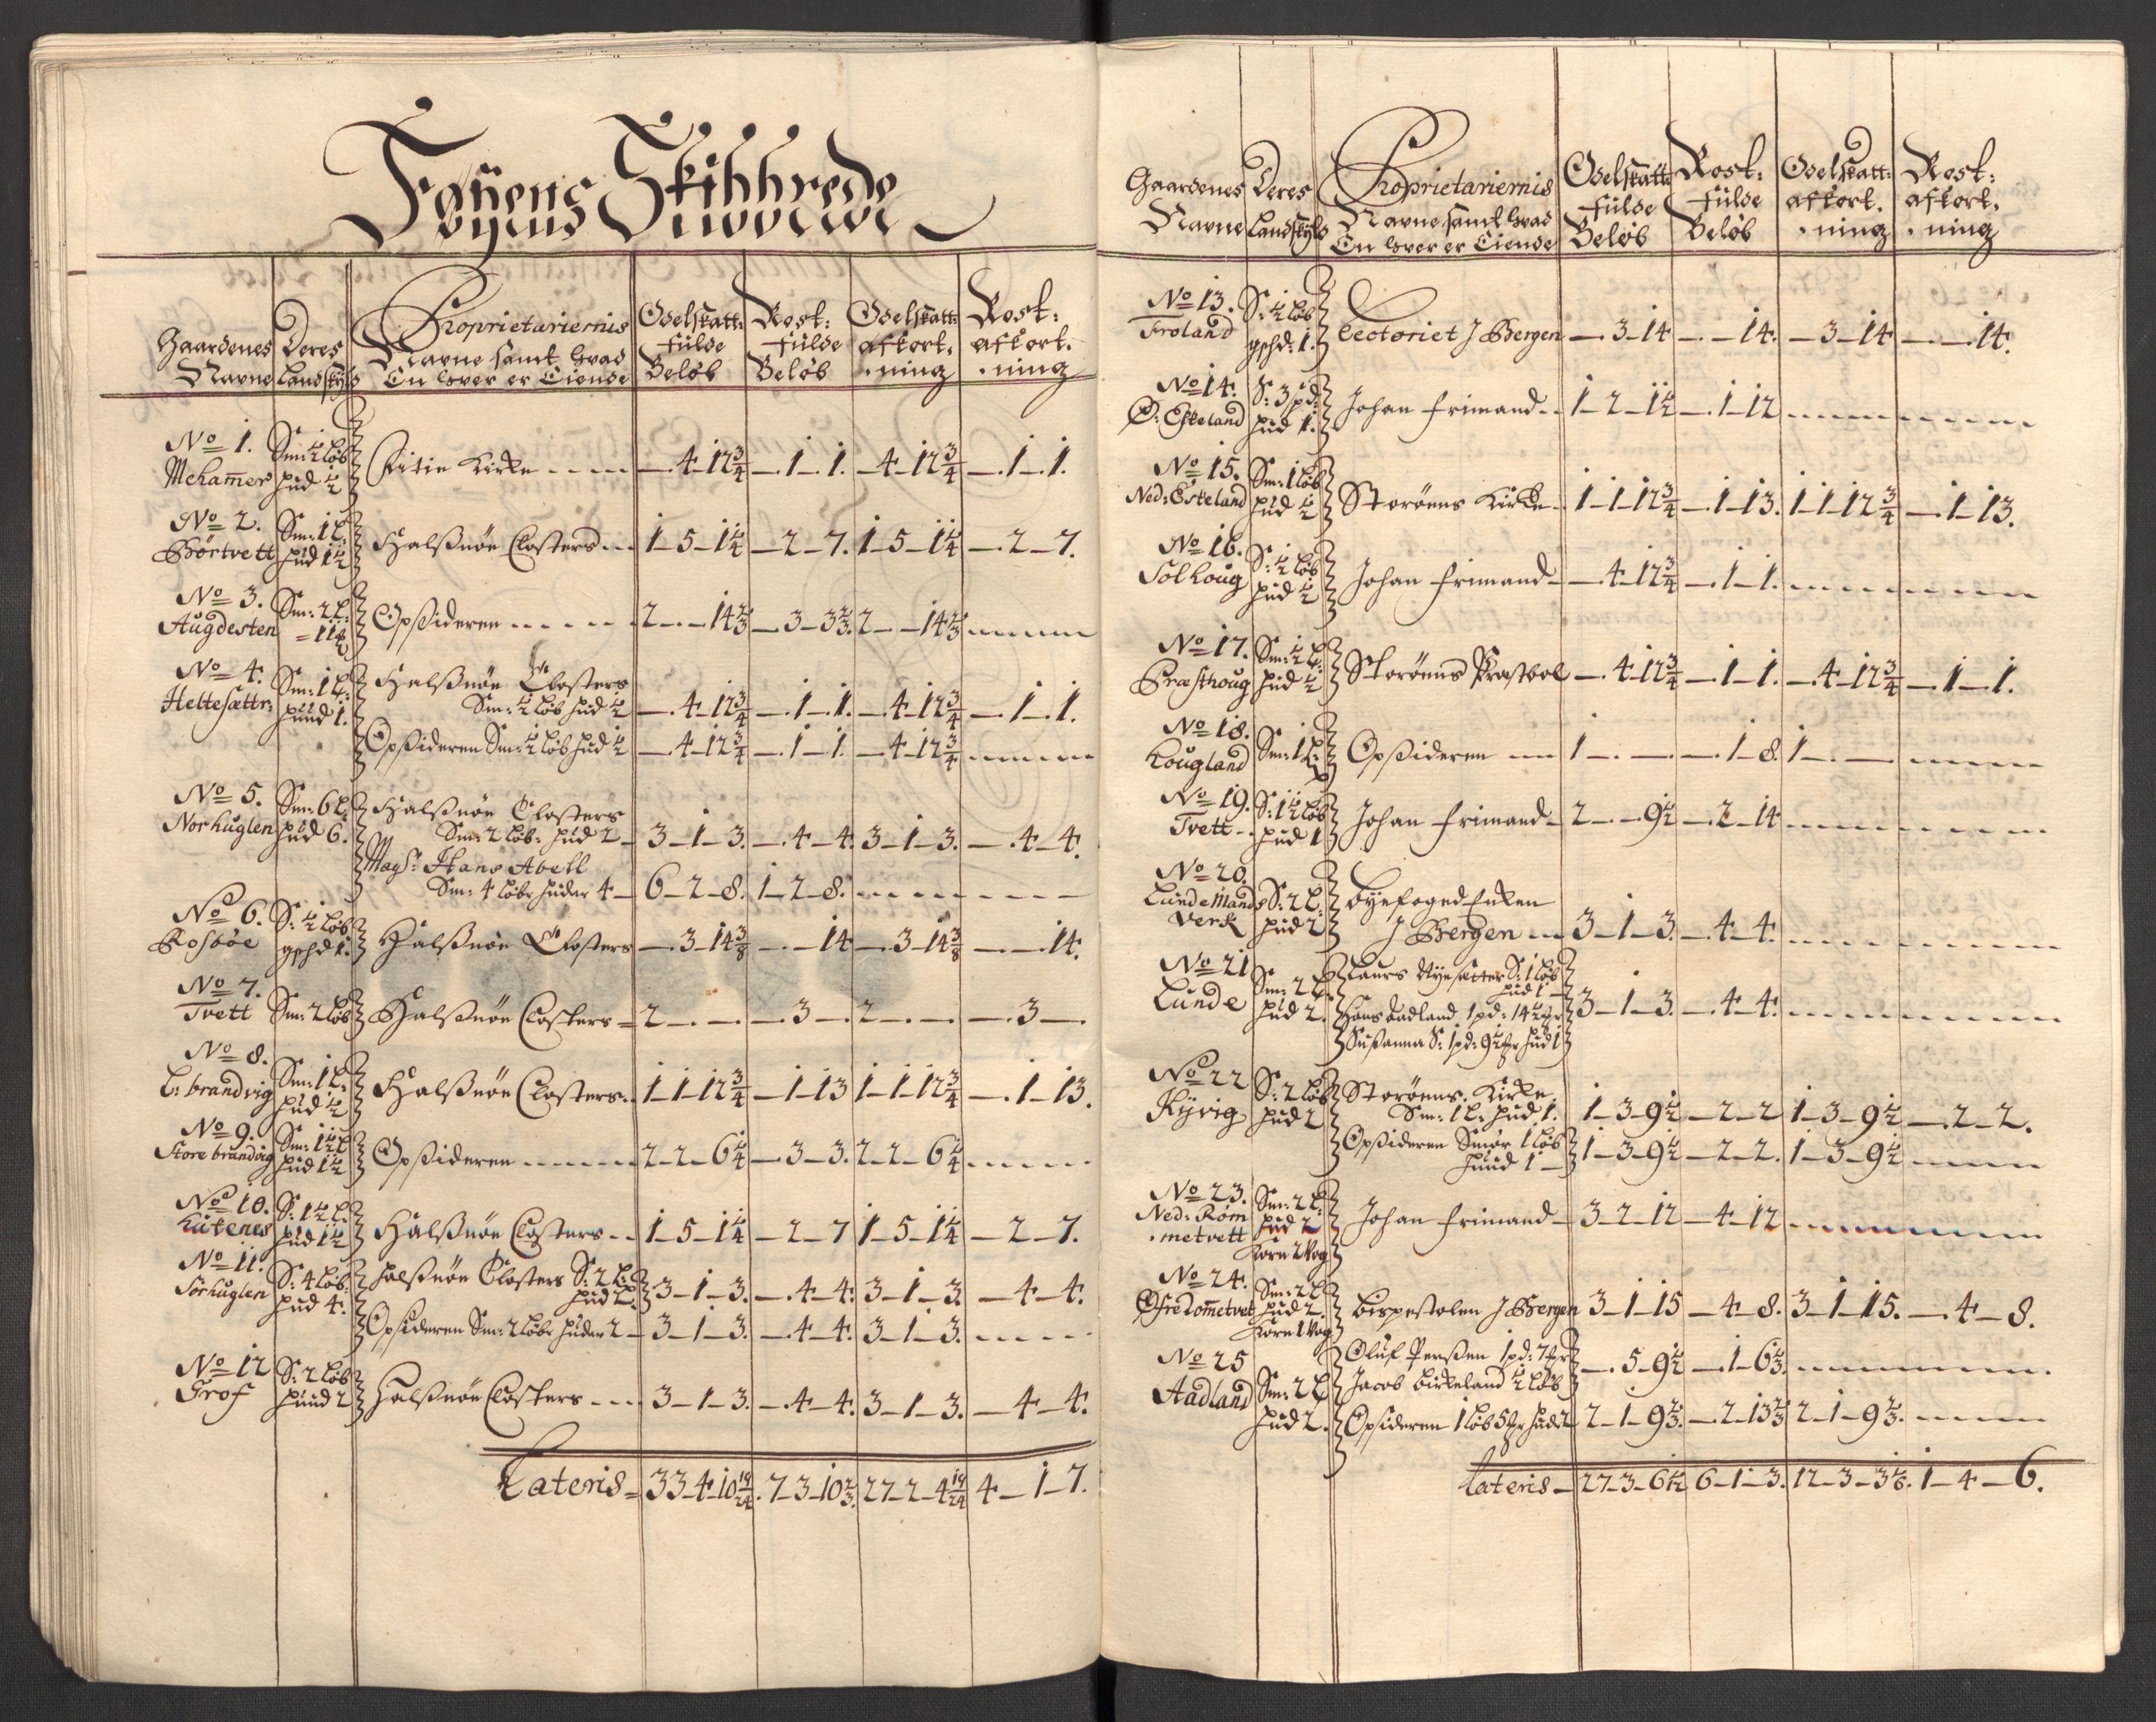 Føÿens Skibbrede
Gaardenes Navne | Deres Landskÿld | Proprietariernis Navne samt hvad En hver er Eiende | Odelskatts fülde Beløb | Rost: fülde Beløb | Odelskatts afkort. ning | Rost: afkort. ning
No 1. Mehamer | Sm: ½ løb hud ½ | Fitie Kirke | 4-12¾ | 1-1. | 4-12¾ | 1-1.
No 2. Børtvett | Sm: 1 L: hud 1½ | Halsnøe Closters | 1-5-1¼ | 2-7. | 1-5-1¼ | 2-7.
No 3. Augdesten | Sm: 2 L: | Opsideren | 2-14⅔ | 3-3⅔. | 2-14⅔
No 4. Heltesættr: | Sm: 1 L: hund 1. | Halsnøe Closters
Sm: ½ løb hud ½ | 4-12¾ | 1-1. | 4-12¾ | 1-1.
Opsideren Sm: ½ løb hud ½ | 4-12¾ | 1-1. | 4-12¾
No 5. Norhuglen | Sm: 6 L: hud 6. | Halsnøe Closters
Sm: 2 løb: hud 2 | 3-1-3. | 4-4. | 3-1-3. | 4-4.
Mags: Hans Abell
Sm: 4 løb: huder 4 | 6-2-8. | 1-2-8.
No 6. Rosbøe | S: ½ løb gschd 1. | Halsnøe Closters | 3-14⅜ | 14 | 3-14⅜ | 14.
No 7. Tvett | Sm: 2 løb | Halsnøe Closters | 2 | 3 | 2 | 3
No 8. L: brandvig | Sm: 1 L: hud ½ | Halsnøe Closters | 1-1-12¾ | 1-13 | 1-1-12¾ | 1-13.
No 9. Store brandvig | Sm: 1½ L hud 1½ | Opsideren | 2-2-6¼ | 3-3. | 2-2-6¼
No 10. Kutenes | S: 1½ L: hud 1½ | Halsnøe Closters | 1-5-1¼ | 2-7 | 1-5-1¼ | 2-7.
No 11. Sørhuglen | S: 4 løb: hud 4. | halsnøe Closters S: 2 L: hud 2. | 3-1-3. | 4-4. | 3-1-3. | 4-4.
Opsideren Sm: 2 løb: huder 2 | 3-1-3. | 4-4. | 3-1-3.
No 12 Grof | S: 2 løb hund 2 | Halsnøe Closters | 3-1-3. | 4-4. | 3-1-3. | 4-4.
Lateris | 33-4-10 19/24. | 7-3-10⅔. | 27-2-4 19/24 | 4-1-7.
Gaardenes Navne | Deres Landskÿld | Proprietariernis Navne samt hvad En hver er Eiende | Odelskatts fülde Beløb | Rost: fülde Beløb | Odelskatt: afkort. ning | Rost: afkort. ning
No 13. Froland | S: ½ løb gschd: 1. | Lectoriet J Bergen | 3-14 | 14. | 3-14 | 14.
No 14. Ø: Eskeland | S: 3 pd: hud 1. | Johan frimand | 1-2-1½ | 1-12
No 15. Ned: Eskeland | Sm: 1 løb hud ½ | Storøens Kirke | 1-1-12¾ | 1-13. | 1-1-12¾ | 1-13.
No 16. Solhoug | S: ½ løb hud ½ | Johan frimand | 4-12¾ | 1-1.
No 17. Præsthoug | Sm: ½ L: hud ½ | Storøens Præstbol | 4-12¾ | 1-1. | 4-12¾ | 1-1.
No 18. Hougland | Sm: 1 L: | Opsideren | 1 | 1-8. | 1
No 19. Tvett | S: 1½ løb hud 1 | Johan frimand | 2-9½ | 2-14
No 20. Lunde Mands verk | S: 2 L. hud 2 | Byefoged Enken
J Bergen | 3-1-3. | 4-4.
No 21 Lunde | Sm: 2 L: hud 2. | Laurs Nÿesætter S: 1 løb hud 1
Hans Aadland 1 pd: 14½ | 3-1-3. | 4-4.
Susanna S: 1 pd: 9½ hud 1
No 22 Kÿvig | S: 2 løb hud 2 | Storøens Kirke
Sm: 1 L: hud 1. | 1-3-9½ | 2-2 | 1-3-9½ | 2-2.
Opsideren Smør 1 løb
hund 1 | 1-3-9½ | 2-2. | 1-3-9½
No 23. Ned: Røm metvett | Sm: 2 L: hud 2 Korn 2 Vog | Johan frimand | 3-2-12 | 4-12
No 24. Øfre Rometvet | Sm: 2 L hud 2. Korn 1 Vog | Bispestolen J Bergen | 3-1-15 | 4-8. | 3-1-15. | 4-8.
No 25 Aadland | Sm: 2 L hud 2. | Oluf Perssen 1 pd: 7
Jacob Birkeland ½ løb | 5-9½ | 1-6⅓.
Opsideren 1 løb 5 hud 2 | 2-1-9⅔. | 2-13⅔ | 2-1-9⅔.
Lateris | 27-3-6½ | 6-1-3. | 12-3-3⅙. | 1-4-6.